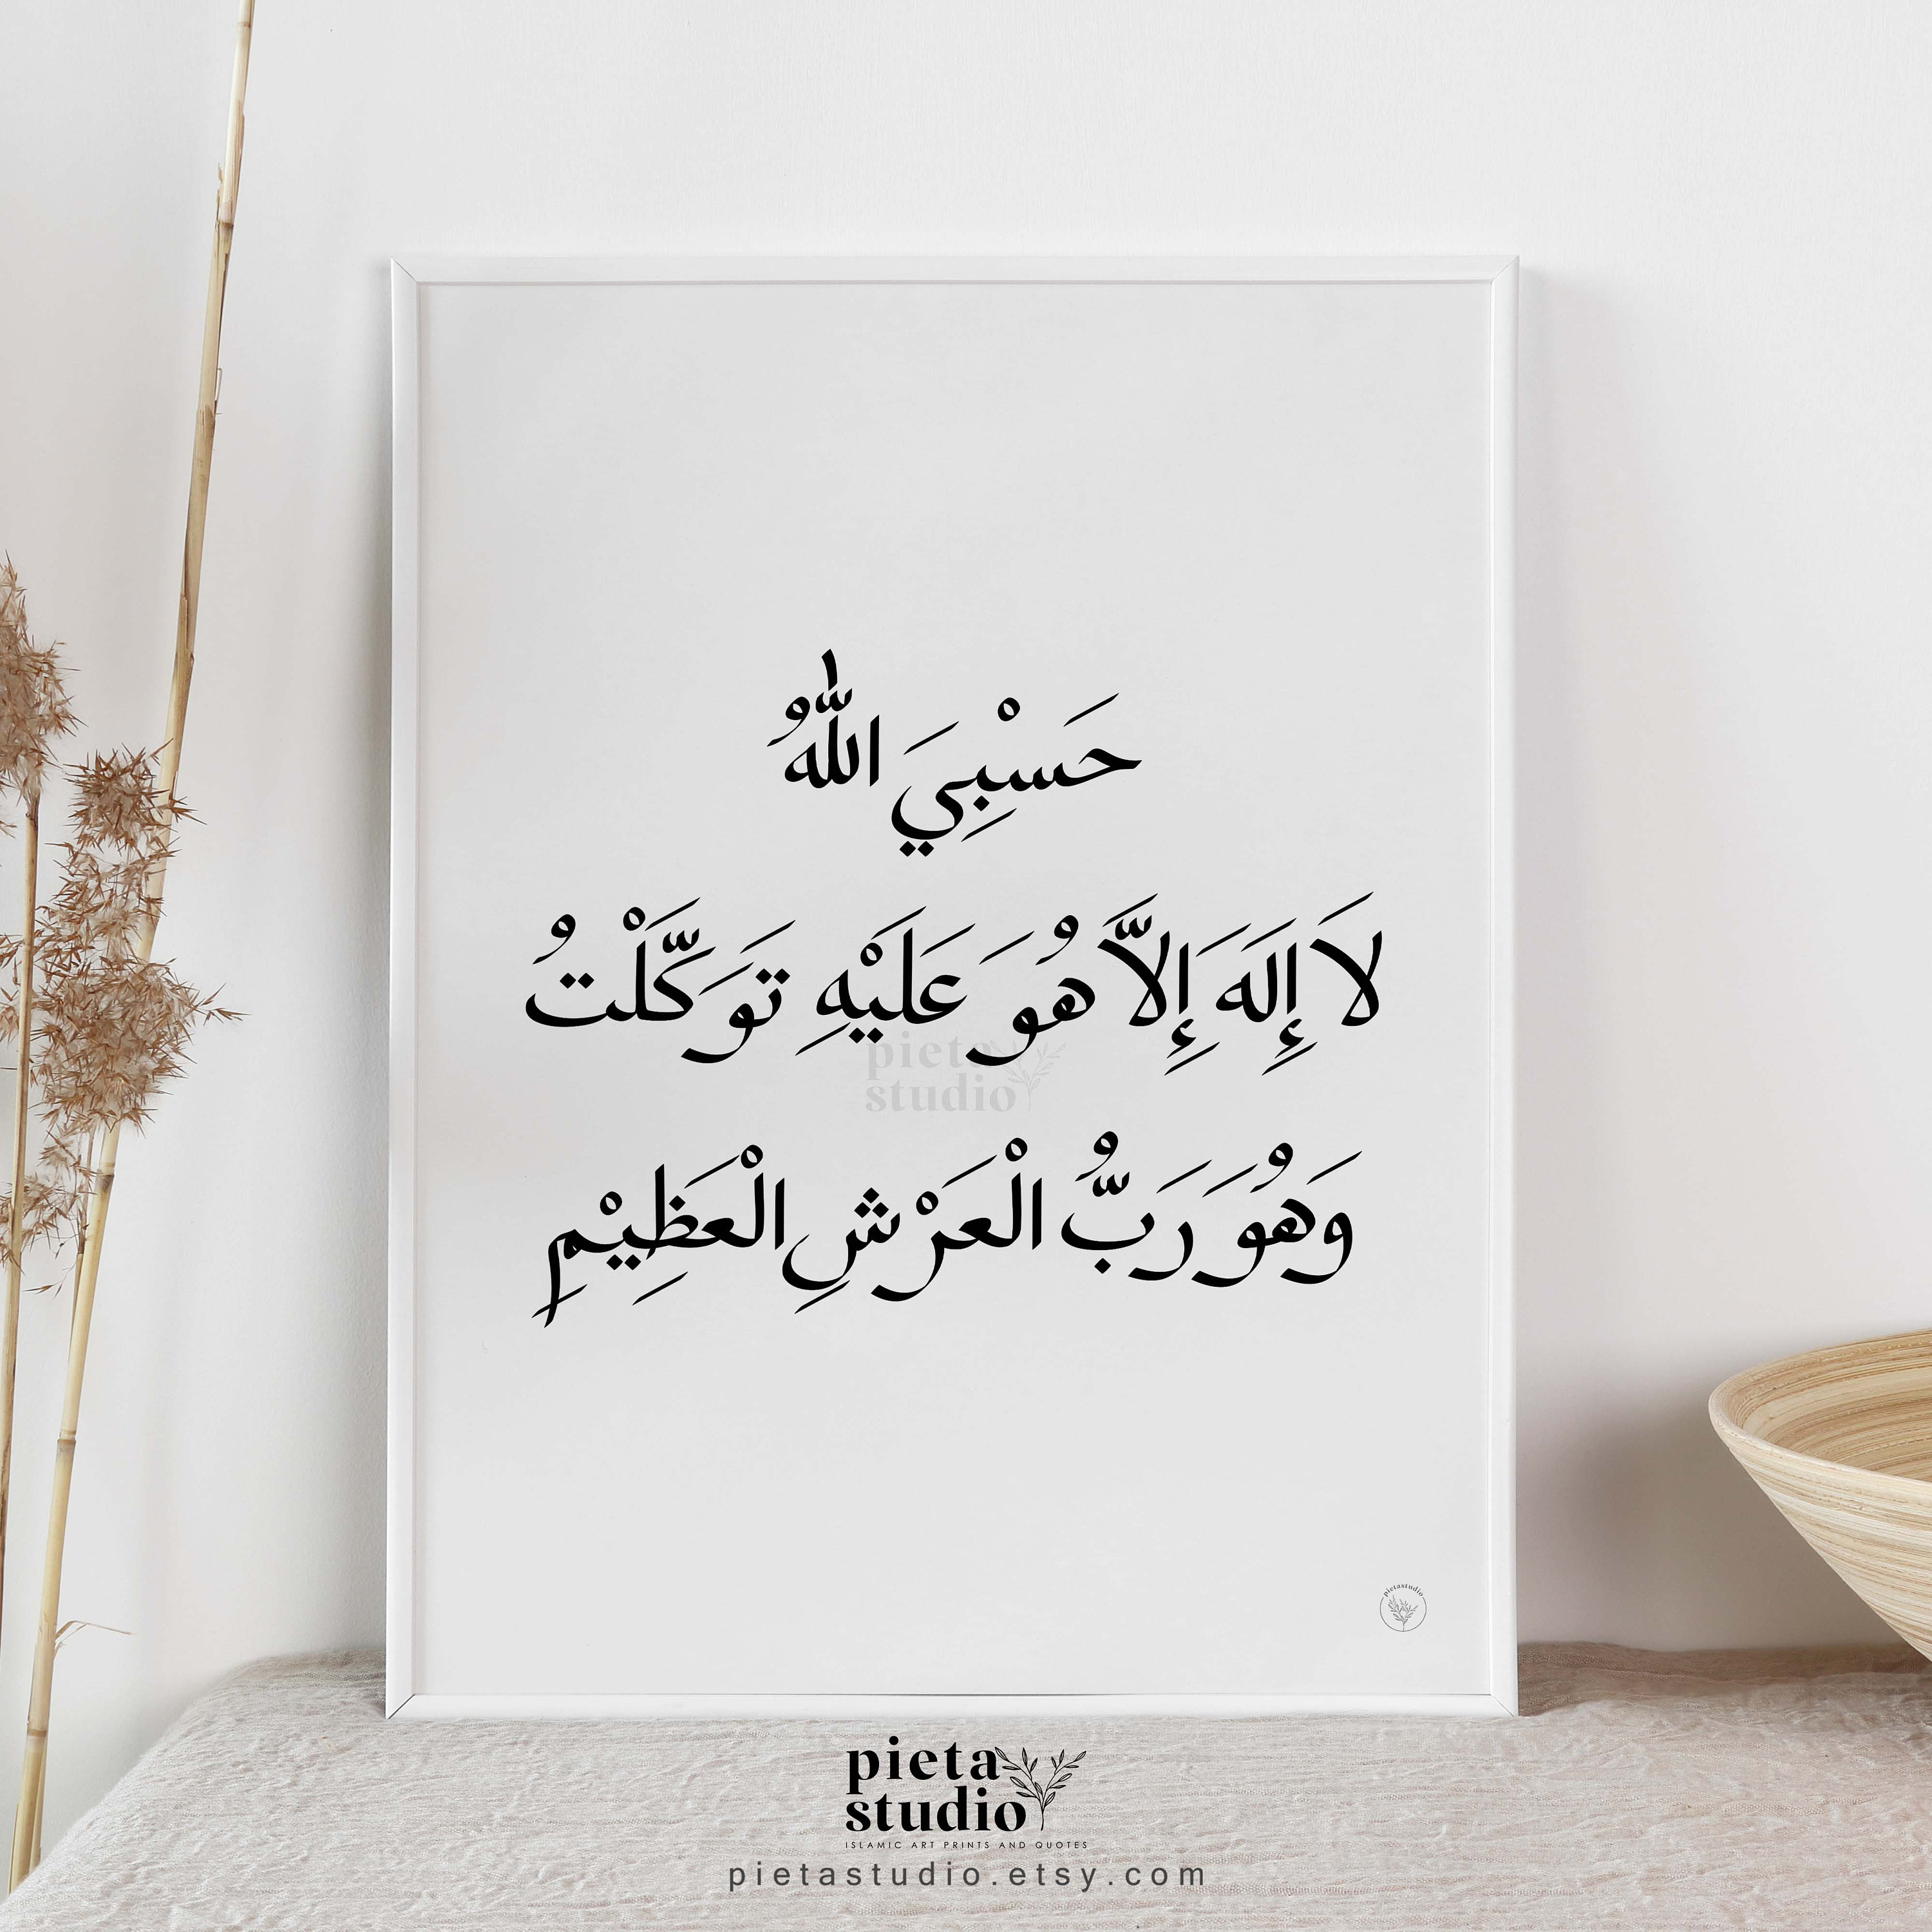 حَسْبِيَ اللّٰهُ
لَا إِلَهَ إِلَّا هُوَ عَلَيْهِ تَوَكَّلْتُ
pieta
studio
وَهُوَ رَبُّ الْعَرْشِ الْعَظِيْمِ
pietastudio
pieta
studio
ISLAMIC ART PRINTS AND QUOTES
pietastudio.etsy.com